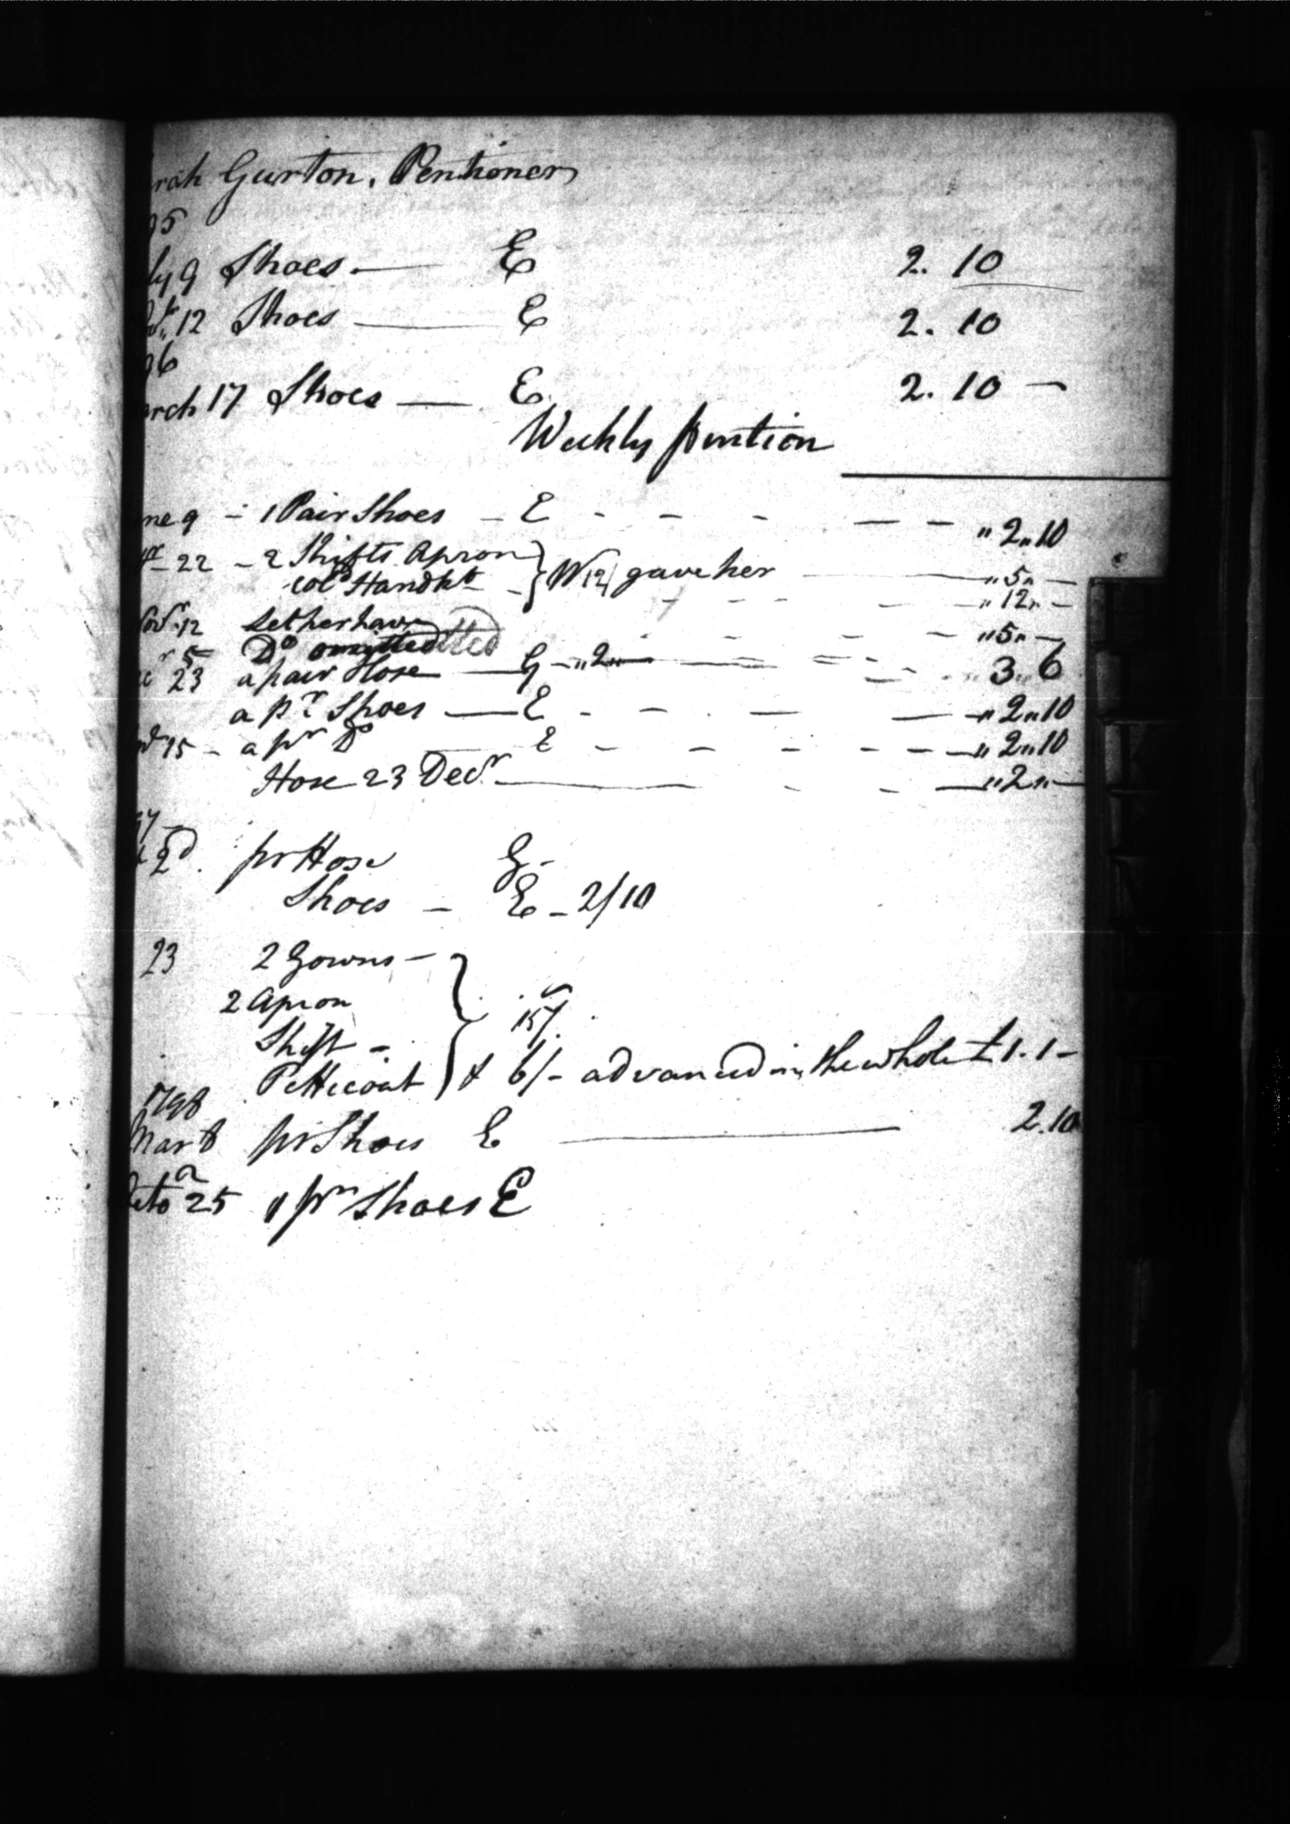 rah Gurton. Pentioner
95
ly 9 Shoes — E 2. 10
12 Shoes — E 2. 10
96
arch 17 Shoes — E 2. 10 —
Weekly pention
ne 9 - 1 Pair Shoes - E - - - — - " 2 " 10
22 - 2 Shifts Apron
Cold Handkf - } W 12/ gave her — " 5 " —
- - - — " 12 " —
Novr 12 Let her have - - - " 5 " —
r 5 Do omitted
23 a pair Hose — G - " 2 " — 3 " 6
a Pr Shoes — E - — — — " 2 " 10
15 - a pr Do — E - - - - - — " 2 " 10
Hose 23 Decr. — - - — " 2 " —
97
2d. pr Hose G -
Shoes - E - 2/10
23 2 Gowns -
2 Apron
Shift - } 15/
Petticoat & 6/- advanced in the whole £1. 1 -
1798
Mar 8 pr Shoes E — 2. 10
Octo 25 1 pr Shoes E